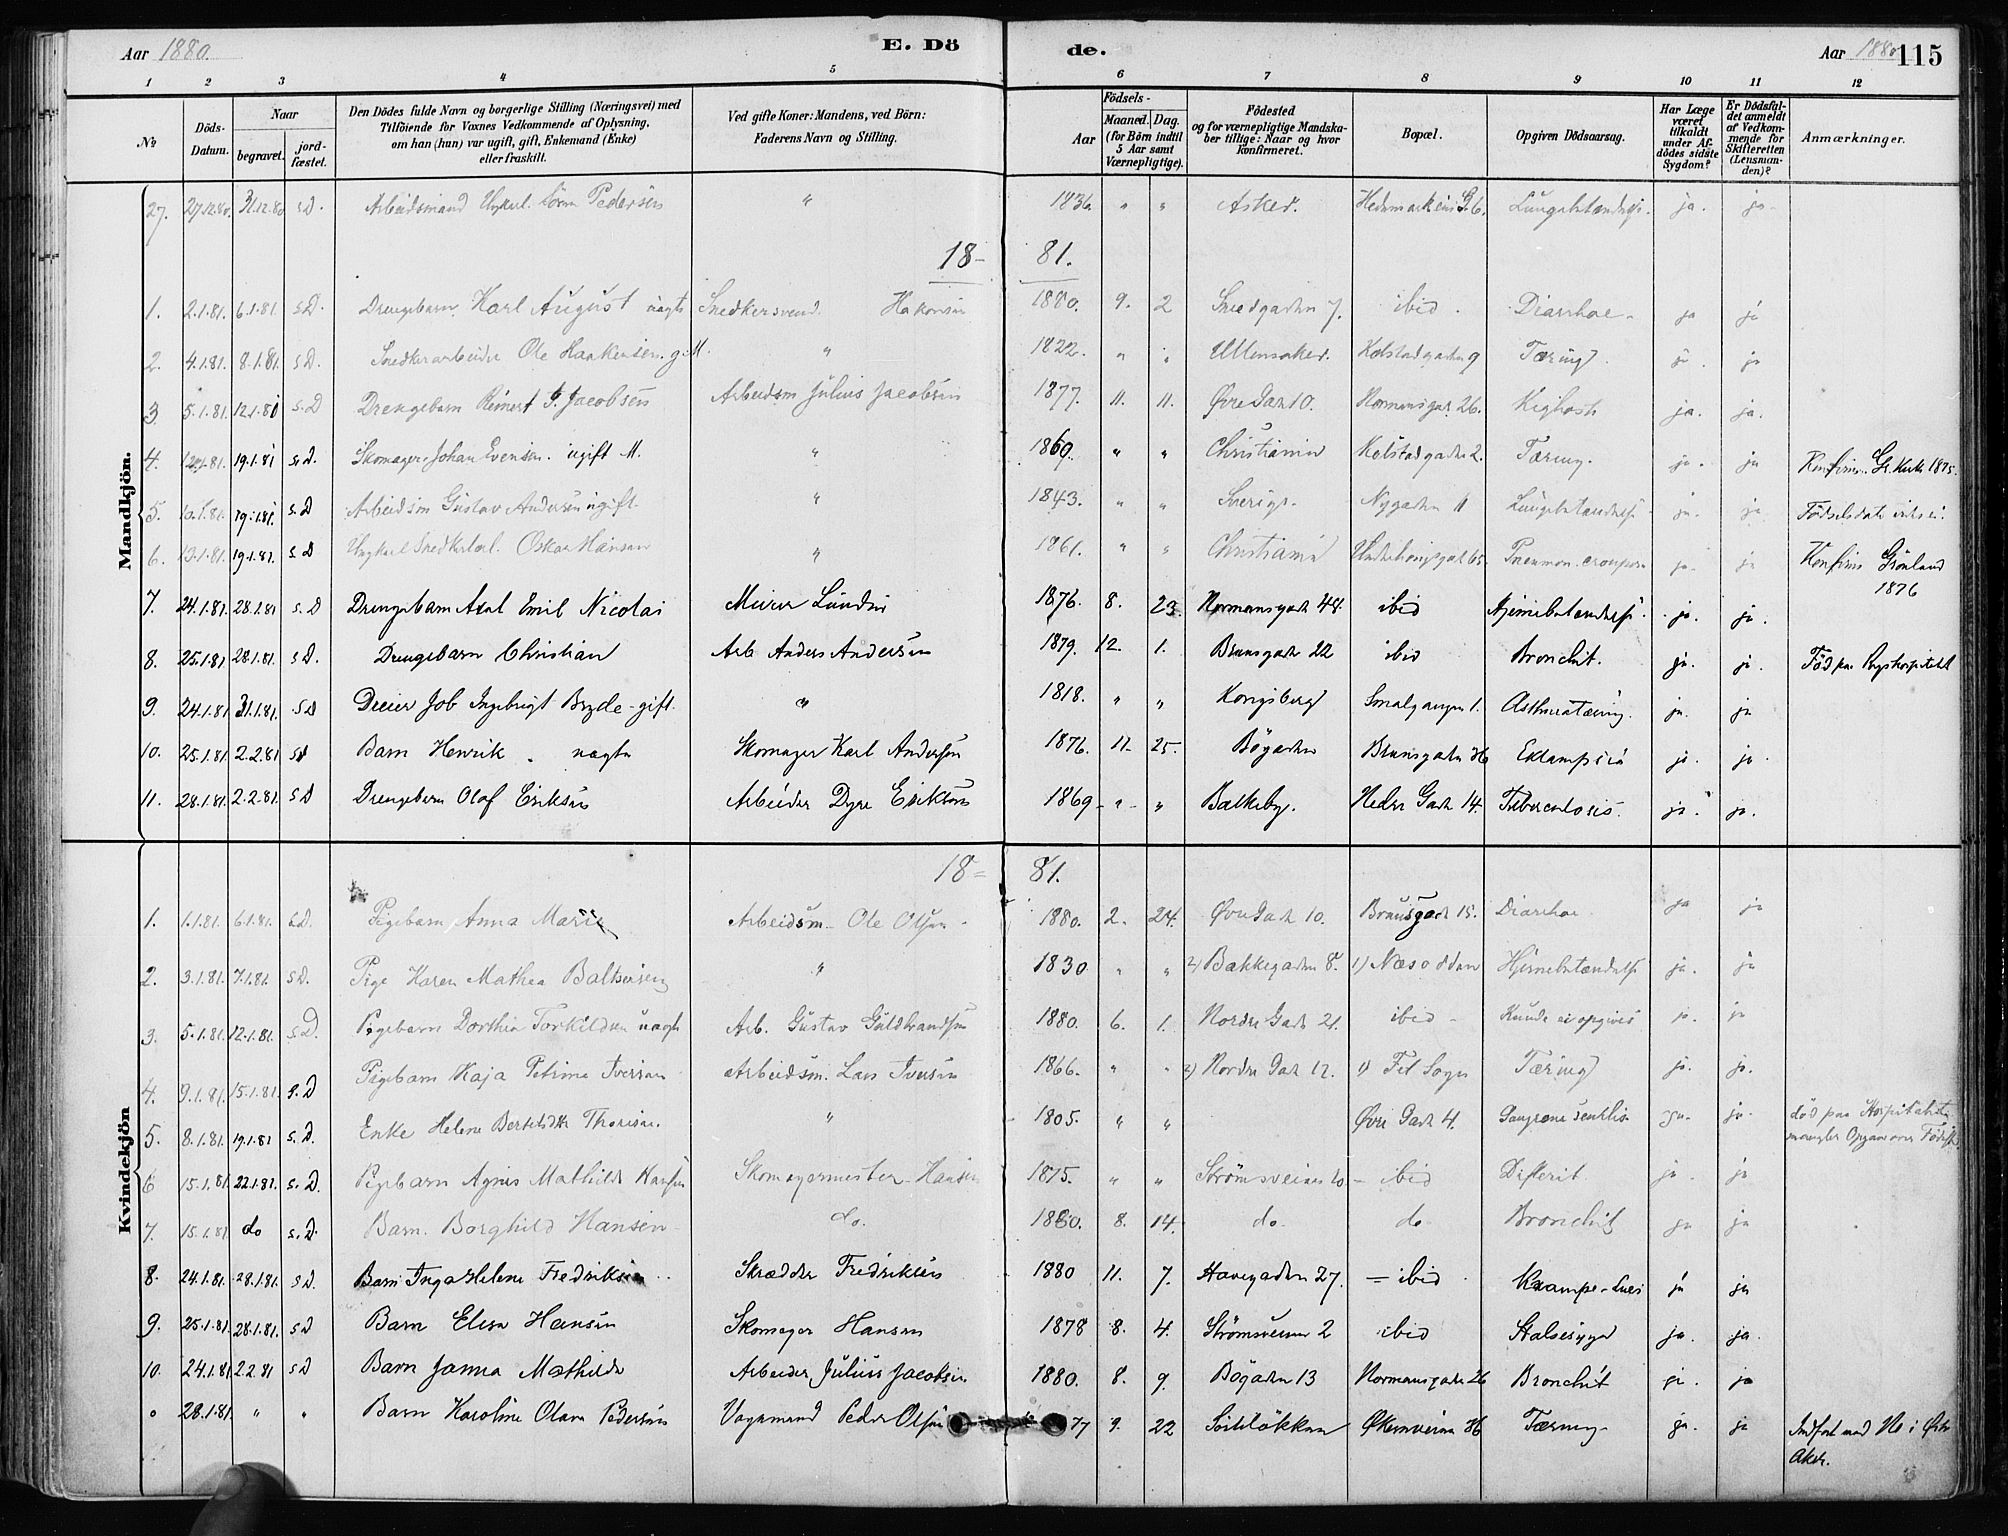 Aar 1880. E. Dö de. Aar 1880 115
1 2 3 4 5 6 7 8 9 10 11 12
No Döds-Datum. Naar begravet. jordfæstet. Den Dödes fulde Navn og borgerlige Stilling (Næringsvei) med Tilföiende for Voxnes Vedkommende af Oplysning, om han (hun) var ugift, gift, Enkemand (Enke) eller fraskilt. Ved gifte Koner: Mandens, ved Börn: Faderens Navn og Stilling. Födsels- Aar Maaned. Dag. (for Börn indtil 5 Aar samt Værnepligtige). Födested og for værnepligtige Mandskaber tillige: Naar og hvor konfirmeret. Bopæl. Opgiven Dödsaarsag. Har Læge været tilkaldt under Afdödes sidste Sygdom? Er Dödsfaldet anmeldt af Vedkommende for Skifteretten (Lensmanden)? Anmærkninger.
Mandkjön.
27. 27.12.80. 31.12.80 s.D. Arbeidsmand Ungkarl Pedersen " 1836 " " Asker. Hedemarkens G. 6. Lungebetændelse. ja. ja.
18- 81.
1. 2.1.81. 6.1.81. s.D. Drengebarn Karl August uægte Snedkersvend Hakonsen 1880. 9. 2 Smedgaden 7. ibid. Diarrhoe. ja ja
2. 4.1.81. 8.1.81. s.D. Snedkerarbeider Ole Haakensen. g. M. " 1822. " " Ullensaker. Kolstadgaden 9 Tæring. ja
3 5.1.81. 12.1.81 s.D Drengebarn Reinert J. Jacobsen Arbeidsm Julius Jacobsen 1877. 11. 11. Øvre Gade 10. Normansgad. 26. Kighoste ja. ja.
4. 19.1.81 s.D. Skomager Johan Evensen. ugift M. " 1860. " " Christiania Kolstadgaden 2. Tæring. ja. ja 1875.
5. 10.1.81. 19.1.81. s.D Arbeidsm Gustav Andersen ugift. " 1843. " " Sverige. Nygaden 11 Lungebetændelse ja. ja Fødselsdato
6. 13.1.81. 19.1.81. s.D Ungkarl Oskar Hansen " 1861. " " Christiania 65 Pneumon. crouposa ja. ja Konfirm. Grønland 1876
7. 24.1.81. 28.1.81 s.D Drengebarn Axel Emil Nicolai Murer Lundsen 1876. 8. 23. Normansgade 48. ibid Hjernebetændelse. ja. ja.
8. 25.1.81 28.1.81. s.D. Drengebarn Christian Arb Anders Andersen 1879. 12. 1. Brunsgade 22 ibid Bronchit. ja. ja. Fød paa
9. 24.1.81 31.1.81. s.D Job Ingebrigt Bryde - gift. " 1818. " " Kongsberg Smalgangen 1. Asthma tæring. ja. ja
10. 25.1.81. 2.2.81 s.D Barn Henrik. uægte Skomager Karl Andersen 1876. 11. 25. Bøgaden Brunsgaden 36 Eklampsia ja. ja.
11. 28.1.81. 2.2.81. s.D Drengebarn Olaf Eriksen Arbeider Dyre Eriksen 1869 " " Balkeby. Nedre Gade 14. Tuberculosis. ja. ja.
Kvindekjön
18- 81.
1. 1.1.81. 6.1.81. s.D. Pigebarn Anna Marie Arbeidsm. Ole Olsen 1880. 2. 24. Øvre Gade 10. Brunsgade 15. Diarrhoe ja ja
2. 3.1.81. 7.1.81. s.D. Pige Karen Mathea Baltsersen " 1830 " " 2) Bakkegaden 8. 1) Næsodden Hjernebetændelse ja. ja
3. 5.1.81. 12.1.81. s.D. Pigebarn Dorthia Torkildsen uægte Arb. Gustav Guldbrandsen 1880. 6. 1. Nordre Gade 21. ibid Kunde ei opgives ja. ja
4. 9.1.81. 15.1.81. s.D Pigebarn Kaja Petrine Iversen Arbeidsm. Lars Iversen 1866. " " 2) Nordre Gade 12. 1) Fet Sogn Tæring ja. ja.
5. 8.1.81. 19.1.81 s.D. Enke Helene Thoresen. " 1805. " " Øvre Gade 4. Gangræne senilis ja. ja. død paa Hospitalet mangler Opgave over Fødest.
6 15.1.81. 22.1.81. s.D. Pigebarn Agnes Mathilde Hansen Skomagermester Hansen 1875. " " Strømsveien ibid Difterit. ja. ja
7. 15.1.81 do s.D. Barn Borghild Hansen do. 1880. 8. 14. do do Bronchit ja ja
8. 24.1.81. 28.1.81. s.D. Barn Inga Helene Fredriksen Skrædder Fredriksen 1880 11. 7. Havegaden 27. ibid Krampe - ja ja
9. 25.1.81 28.1.81. s.D Barn Elisa Hansen Skomager Hansen 1878 8. 4. Strømsveien 2 ibid Halsesyge ja. ja.
10. 24.1.81 2.2.81 s.D Barn Janna Mathilde Arbeider Julius Jacobsen 1880. 8. 9. Bøgaden 13 Normansgaden 26 Bronchit ja. ja
o 28.1.81. " " Barn Karoline Olava Pedersen Vognmand Peder Olsen 77 9. 22 Økernveien 36 Tæring ja. ja Indført med No i Østre Aker.